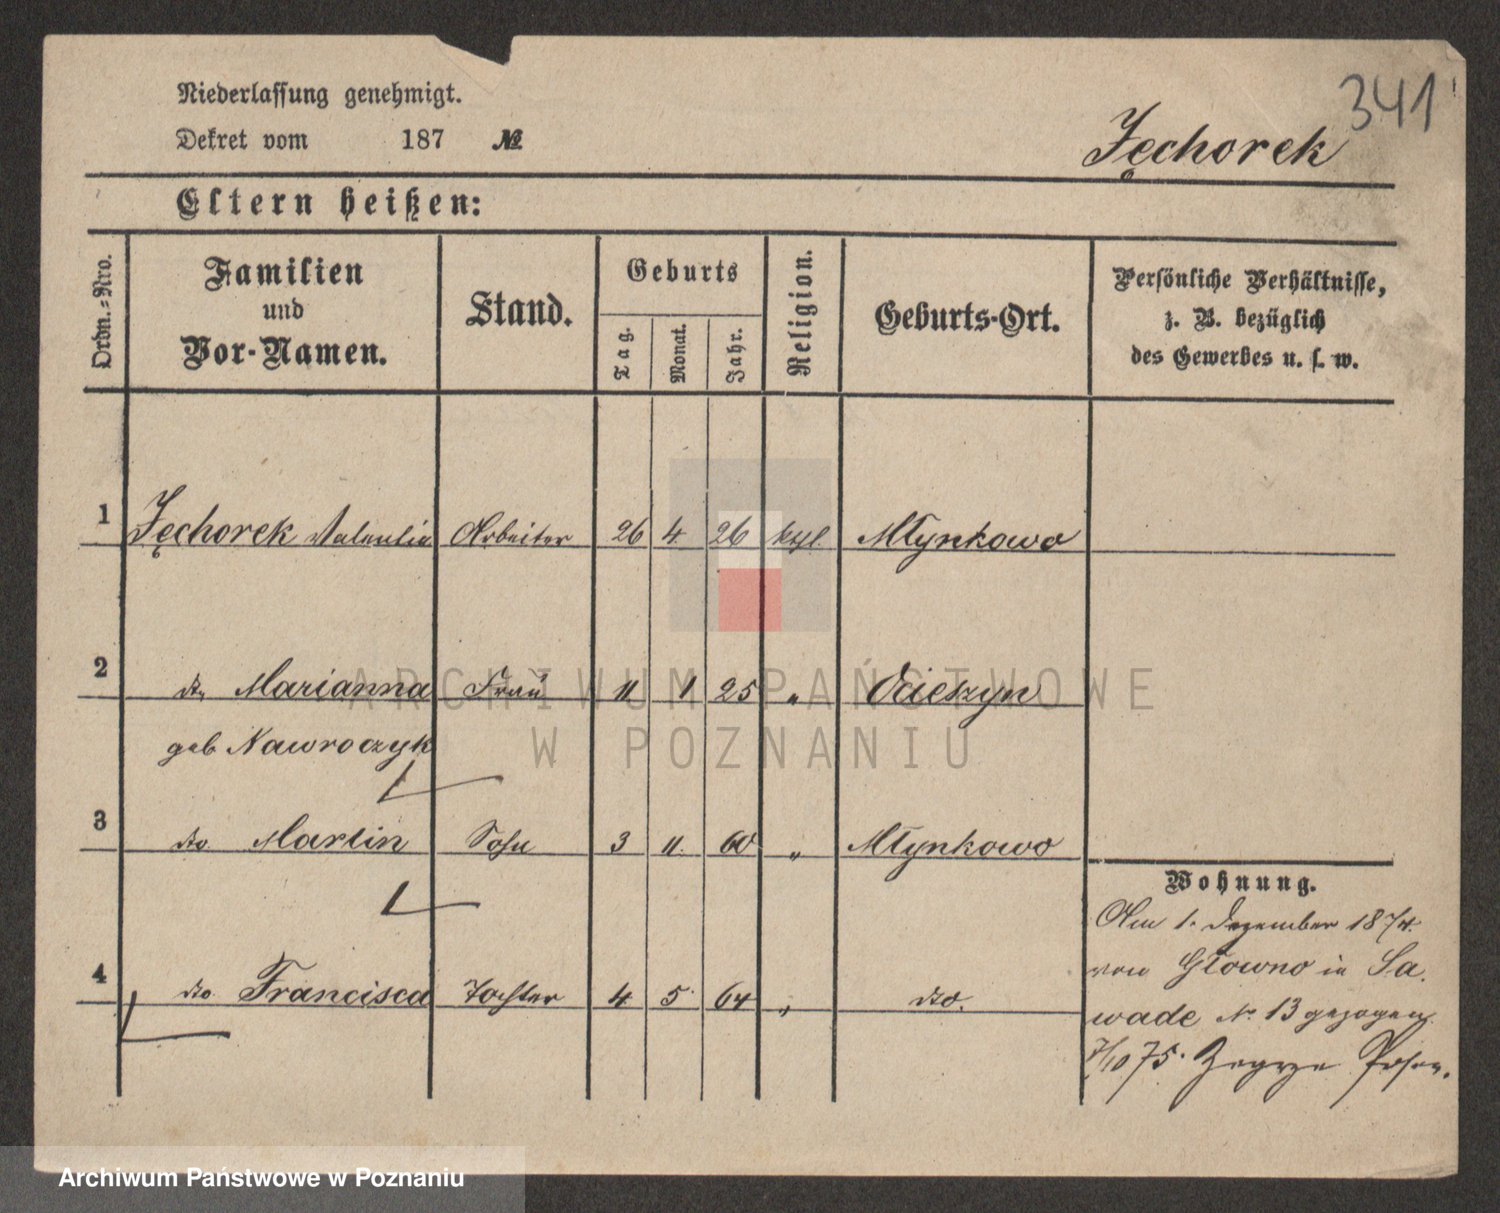 341
Niederlassung genehmigt.
Dekret vom 187 №
Jęchorek
Eltern heißen:
Ordn.-Nro.
Familien
und
Vor-Namen.
Stand.
Geburts
Tag.
Monat.
Jahr.
Religion.
Geburts-Ort.
Persönliche Verhältnisse,
z. B. bezüglich
des Gewerbes u. s. w.
1 Jęchorek Valentin Arbeiter 26 4 26 kal. Młynkowo
2 do Marianna Frau 11 1 25 " Ocieszyn
geb Nawroczyk
3 do. Martin Sohn 3 11. 60 " Młynkowo
4 do. Francisca Tochter 4 5 64 " do.
Wohnung.
Am 1. Dezember 1874.
von Głowno in Sa.
wade № 13 gezogen.
7/10 75. Zegrze Posen.
ARCHIWUM PAŃSTWOWE
W POZNANIU
Archiwum Państwowe w Poznaniu